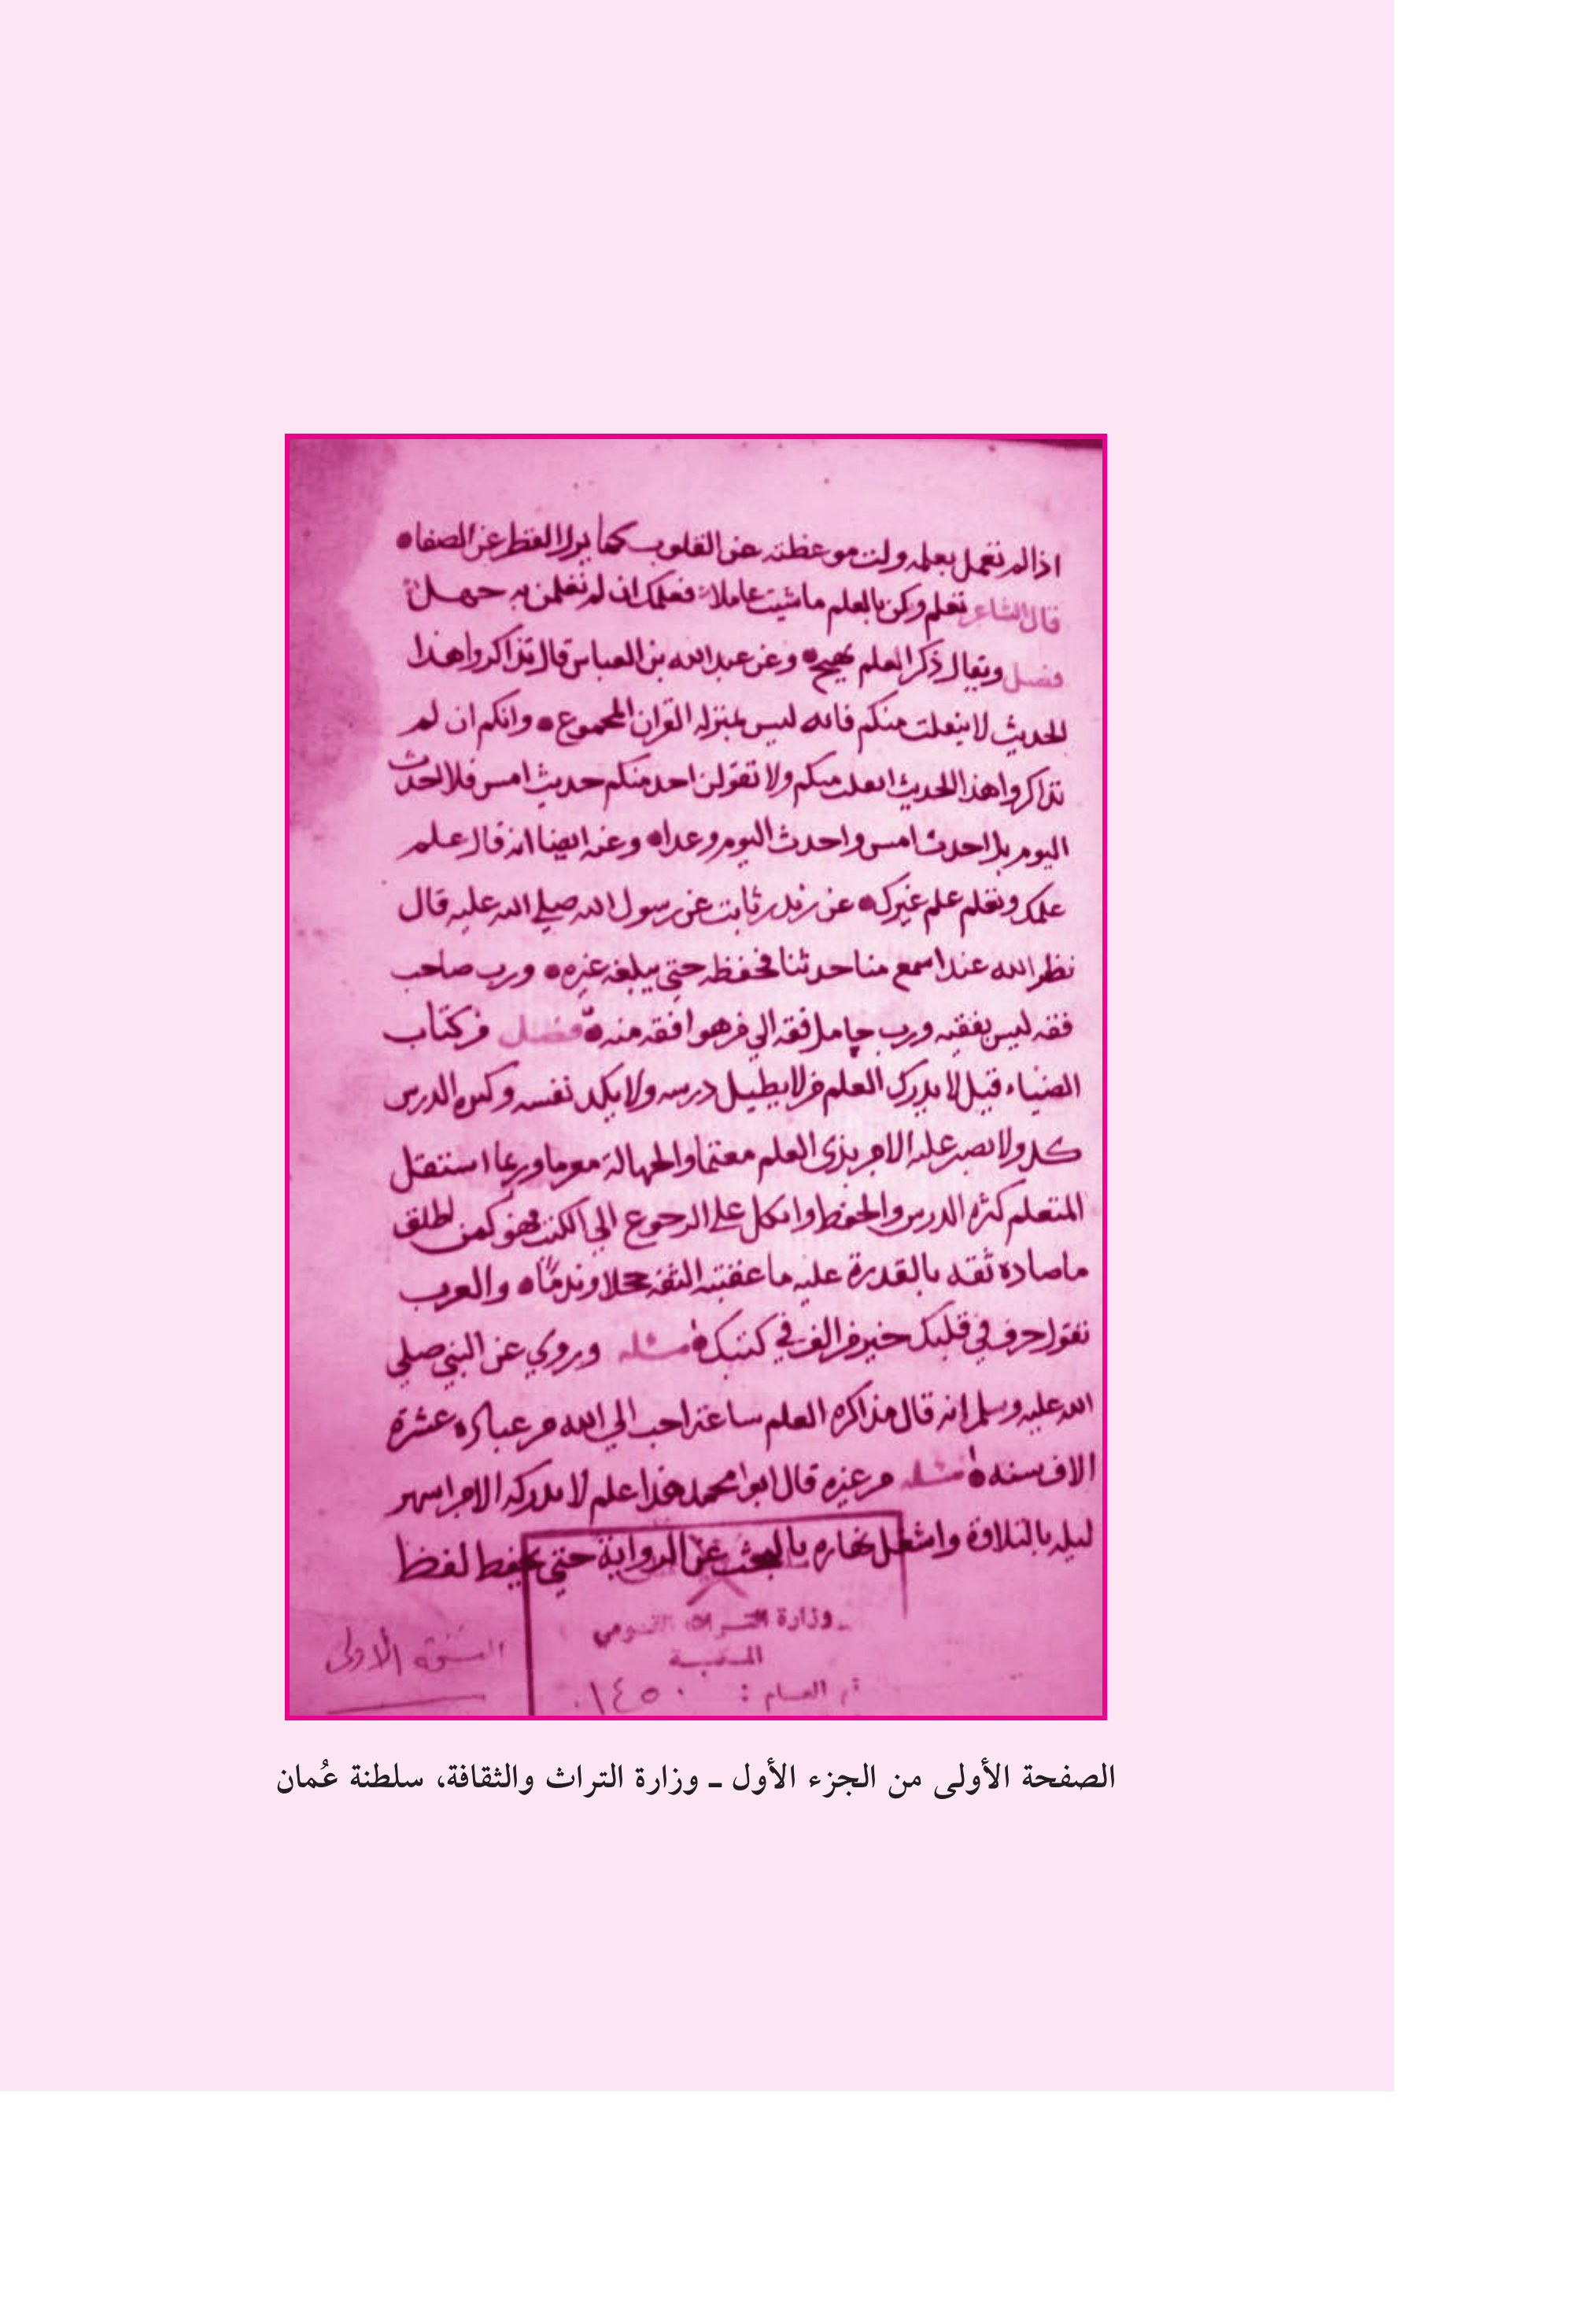 اذا لم نعمل بعلمه ولت موعظته عن القلوب كما يزل القطر عن الصفا
قال الشاعر تعلم وكن بالعلم ما شيت عاملا فعلمك ان لم تعلمن به جهل
فصل ويقال ذكر العلم يهيج وعن عبدالله بن العباس قال تذاكروا هذا
الحديث لا ينفلت منكم فانه ليس بمنزله القران المجموع وانكم ان لم
تذاكروا هذا الحديث انفلت منكم ولا تقولن احد منكم حديث امس فلا احدث
اليوم بل احدث امس واحدث اليوم وغدا وعنه ايضا انه قال علم
علمك وتعلم علم غيرك عن زيد بن ثابت عن رسول الله صلي الله عليه قال
نظر الله عبدا سمع منا حديثا فحفظه حتي يبلغه غيره ورب صاحب
فقه ليس بفقيه ورب حامل فقه الي من هو افقه منه فصل من كتاب
الضياء قيل لا يدرك العلم من لا يطيل درسه ولا يكد نفسه وكثره الدرس
كد ولا يصبر عليه الا من يري العلم مغنما والجهالة مغرما وربما استثقل
المتعلم كثره الدرس والحفظ واتكل علي الرجوع الي الكتب فهو كمن اطلق
ما صاده ثقه بالقدرة عليه ما عقبته الثقه خجلا وندما والعرب
تقول حرف في قلبك خير من الف في كتبك مسئله وروي عن النبي صلي
الله عليه وسلم انه قال مذاكره العلم ساعه احب الي الله من عباده عشرة
الاف سنه مسئله من غيره قال ابو محمد هذا علم لا يدركه الا من اسهر
ليله بالتلاوة واشغل نهاره بالبحث عن الرواية حتي يحفظ لفظ
وزارة التراث القومي
المكتبة
العام : ١٤٥٠
النسخة الأولى
الصفحة الأولى من الجزء الأول ـ وزارة التراث والثقافة، سلطنة عُمان